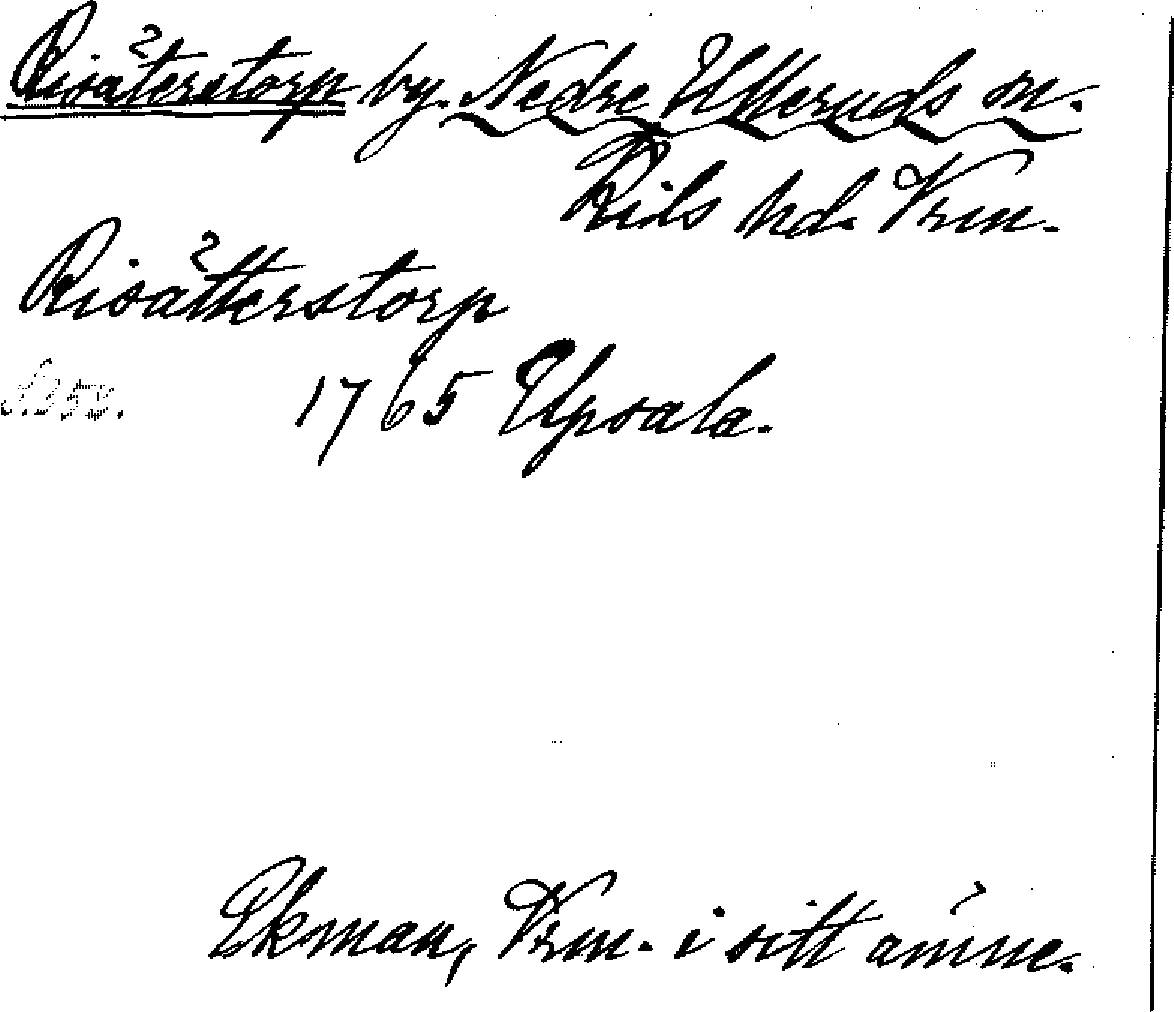 Risäterstorp by. Nedre Ulleruds sn.
Kils hd. Vrm.
Risätterstorp
1765 Upsala.
Ekman, Vrm. i sitt ämne.